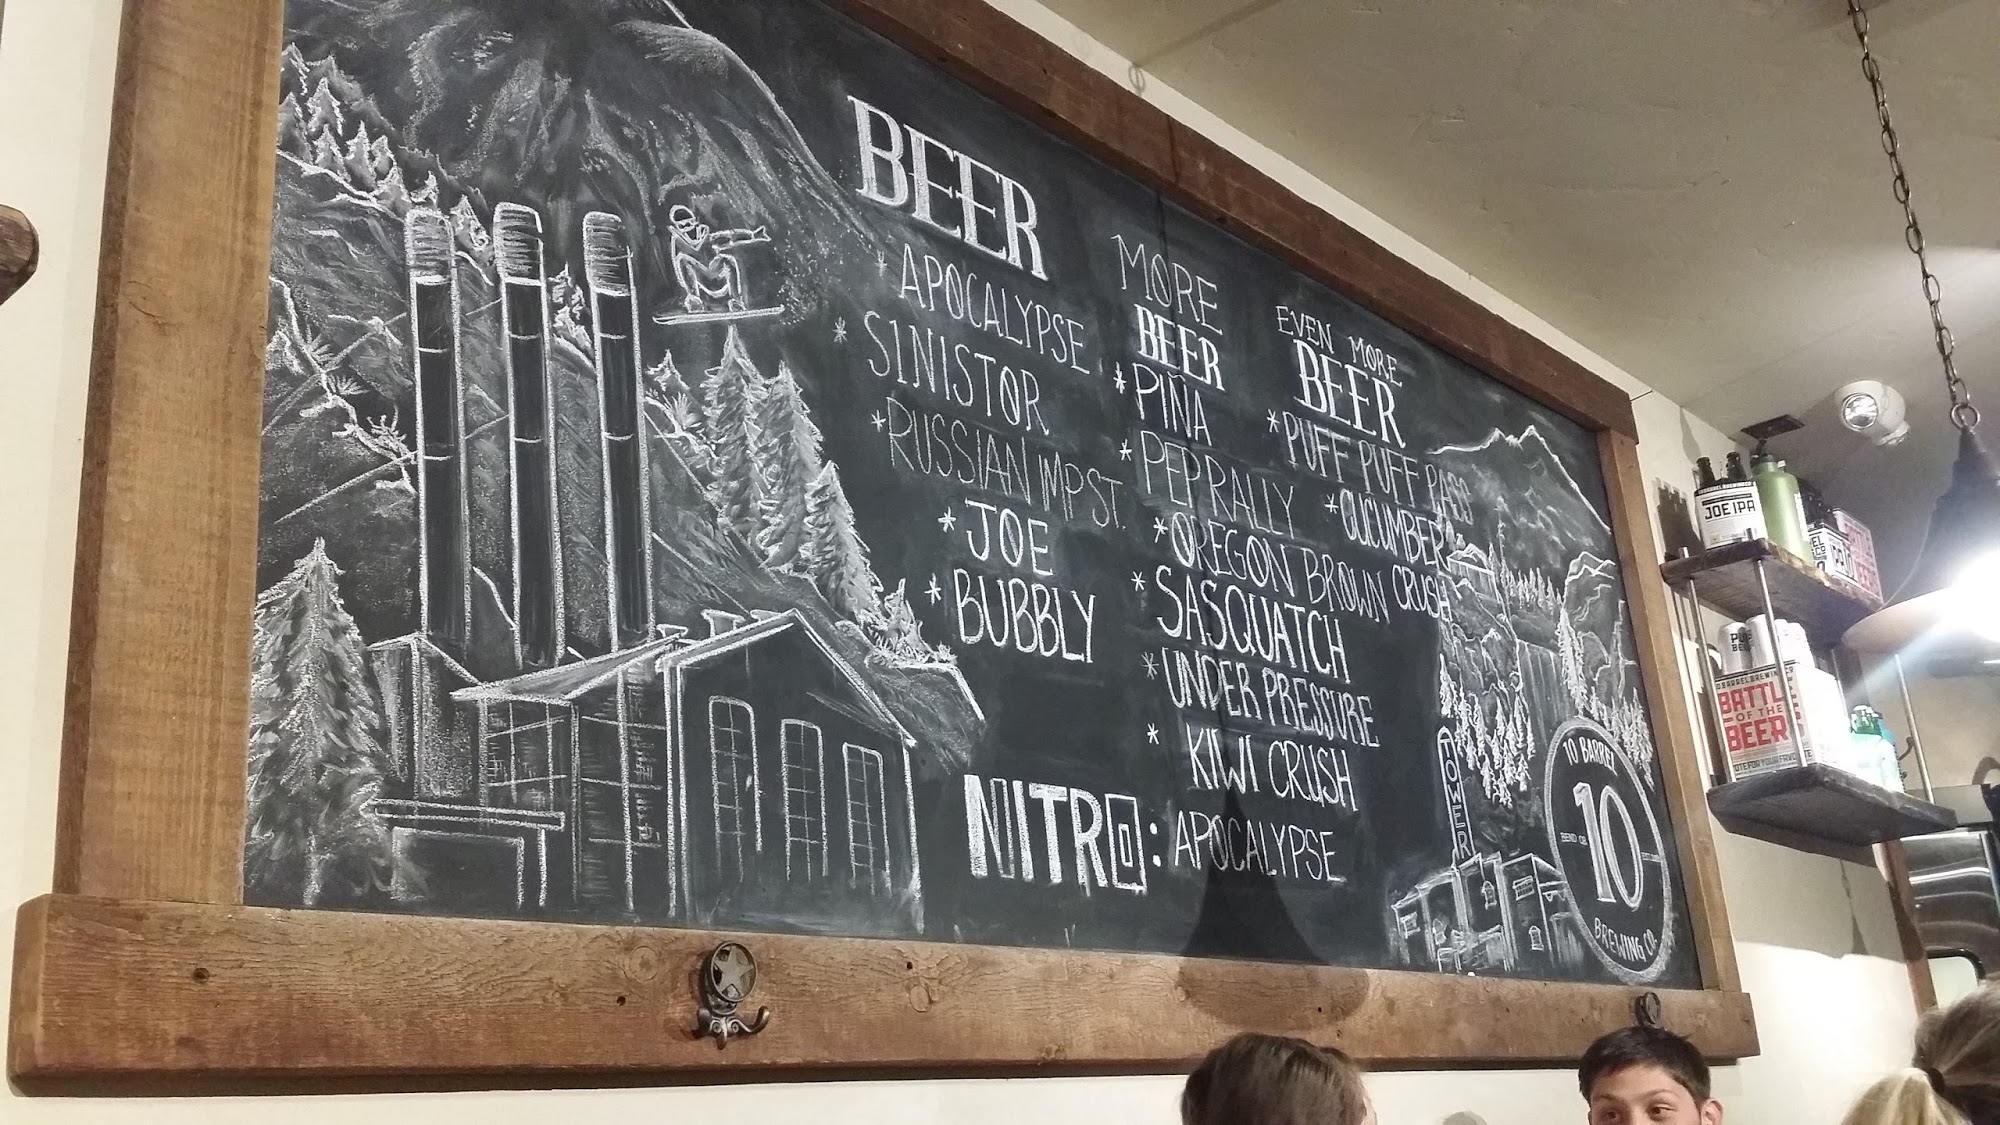 BEER
* APOCALYPSE
* S1NISTOR
* RUSSIAN IMP ST.
* JOE
* BUBBLY
MORE
BEER
* PIÑA
* PEPRALLY
* OREGON BROWN
* SASQUATCH
* UNDER PRESSURE
* KIWI CRUSH
EVEN MORE
BEER
* PUFF PUFF PASS
* CUCUMBER
CRUSH
NITRO: APOCALYPSE
TOWER
10 BARREL
10
BREWING CO.
JOE IPA
BATTLE
OF THE
BEER